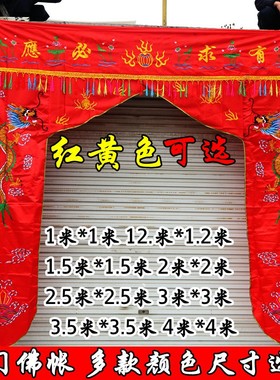 應必求有
红黄色可选
1米*1米 12.米*1.2米
1.5米*1.5米 2米*2米
2.5米*2.5米 3米*3米
3.5米*3.5米 4米*4米
门佛帐 多款颜色尺寸选